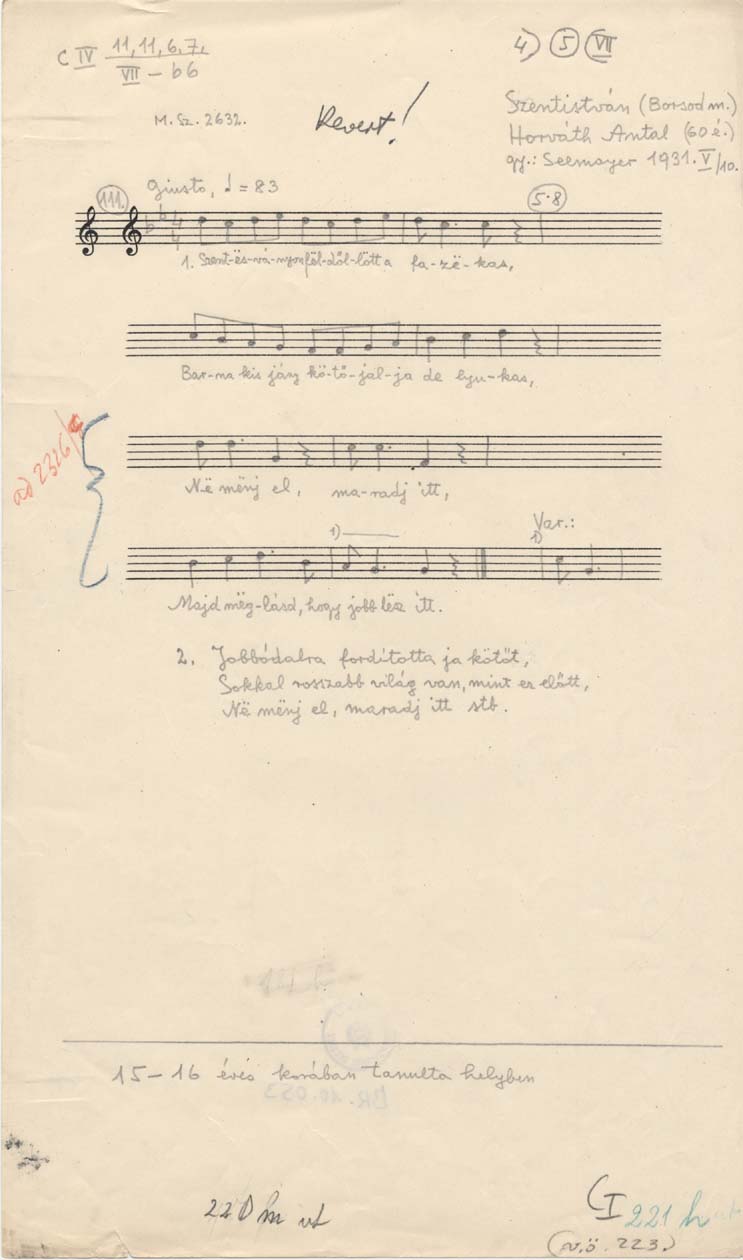 C IV 11, 11, 6, 7.
VII – b6
4) 5 VII
M. Sz. 2632.
Kevert!
Szentistván (Borsod m.)
Horváth Antal (60 é.)
gy.: Seemayer 1931. V/10.
111.
Giusto, ♩ = 83
5·8
1. Szent-ës-vá-nyon föl-dől-lött a fa-zë-kas,
Bar-na kis jány kö-tő-jal-ja de lyu-kas,
ad 2326/
Në mënj el, ma-radj itt,
1)
Var.:
1)
Majd mëg-lásd, hogy jobb lësz itt.
2. Jobbódalra fordította ja kötőt,
Sokkal rosszabb világ van, mint ez előtt,
Në mënj el, maradj itt stb.
15–16 éves korában tanulta helyben
BR. 10.053
C I 221 h
(v.ö. 223.)